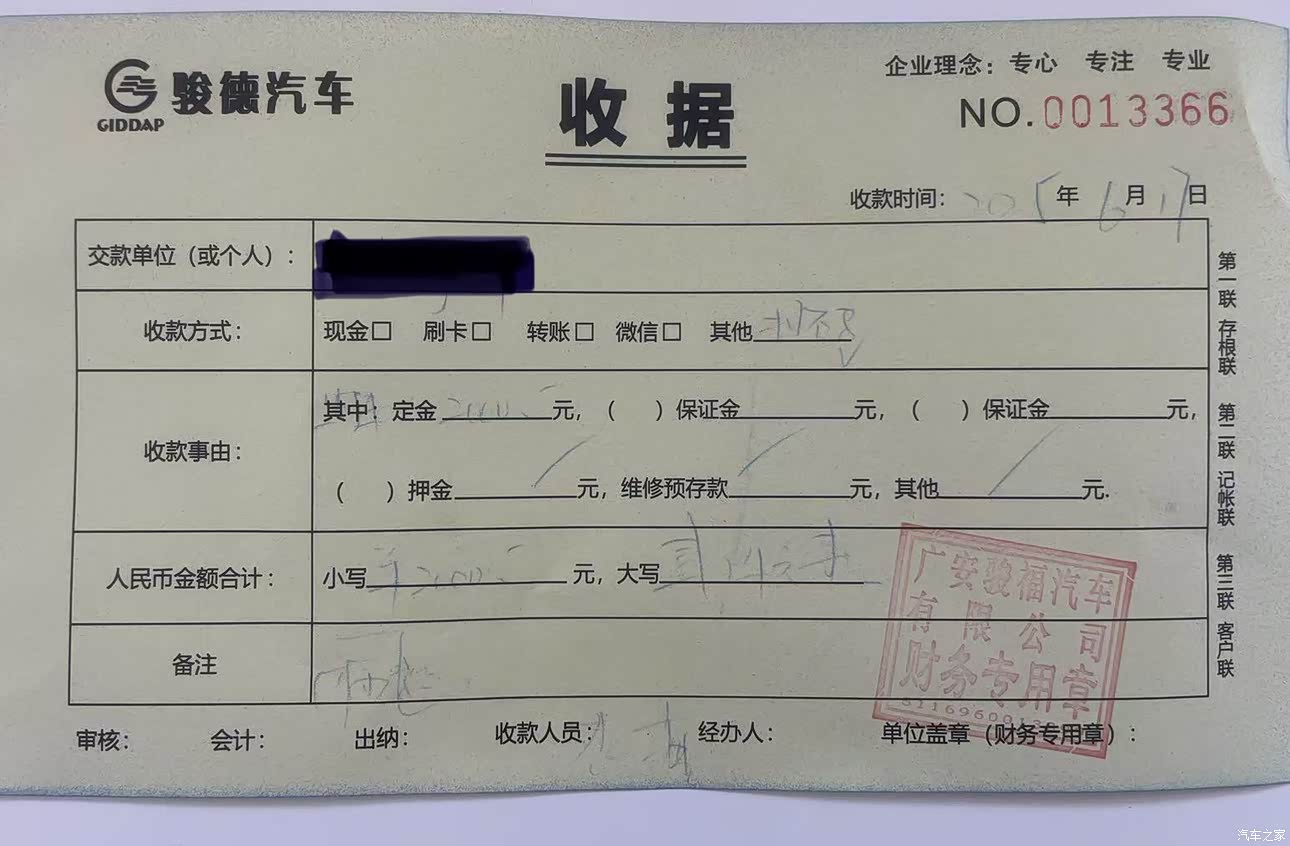 骏德汽车
GIDDAP
收据
企业理念：专心 专注 专业
NO.0013366
收款时间：2025年6月17日
交款单位（或个人）：
收款方式： 现金□ 刷卡□ 转账□ 微信□ 其他
收款事由：
其中：定金2000.元，（ ）保证金 元，（ ）保证金 元，
（ ）押金 元，维修预存款 元，其他 元.
人民币金额合计： 小写2000. 元，大写
备注
审核： 会计： 出纳： 收款人员： 经办人： 单位盖章（财务专用章）：
第一联 存根联 第二联 记帐联 第三联 客户联
广安骏福汽车
有限公司
财务专用章
汽车之家